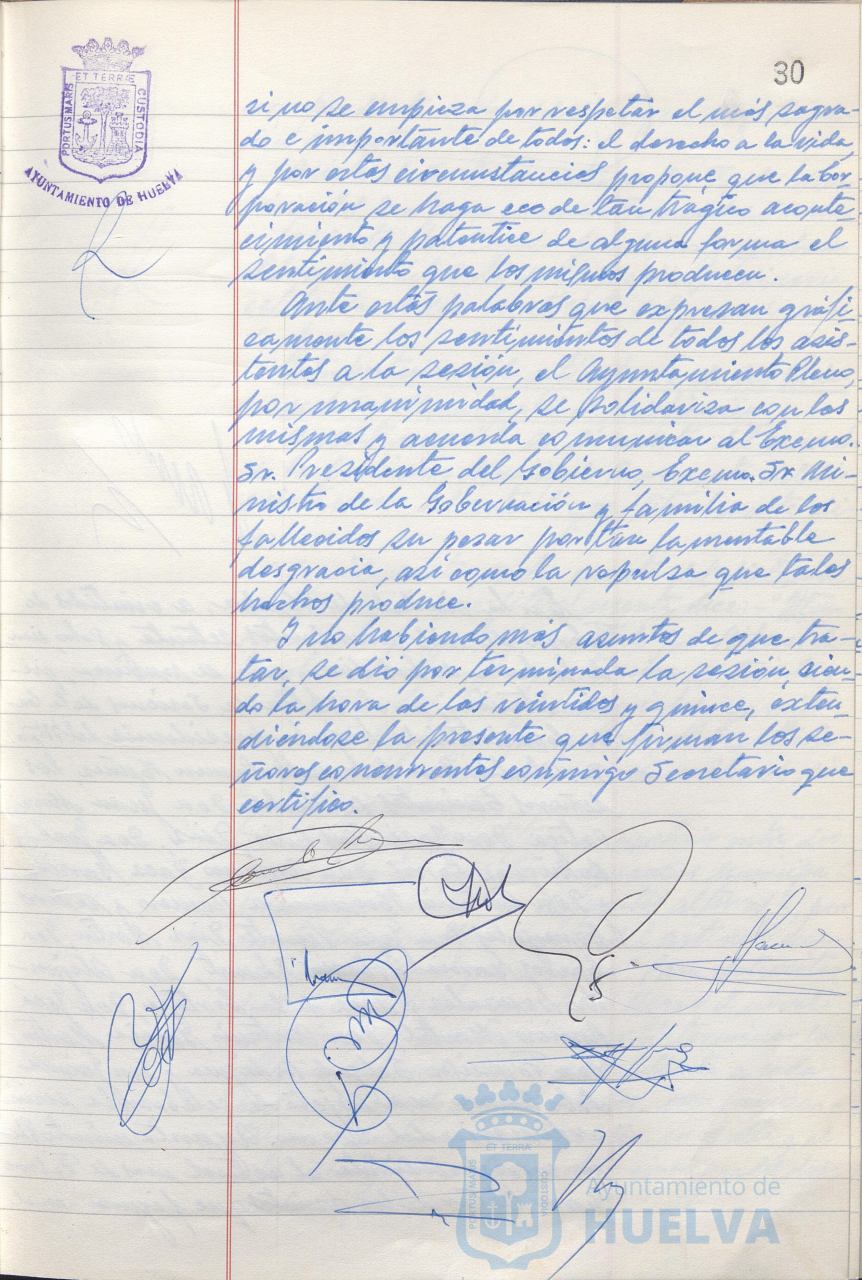 30
ET TERRÆ
PORTUS MARIS
CUSTODIA
AYUNTAMIENTO DE HUELVA
si no se empieza por respetar el más sagra-
do e importante de todos: el derecho a la vida,
y por estas circunstancias propone que la Cor-
poración se haga eco de tan trágico aconte-
cimiento y patentice de alguna forma el
sentimiento que los mismos producen.
Ante estas palabras que expresan gráfi-
camente los sentimientos de todos los asis-
tentes a la sesión, el Ayuntamiento Pleno,
por unanimidad, se solidariza con las
mismas y acuerda comunicar al Excmo.
Sr. Presidente del Gobierno, Excmo. Sr. Mi-
nistro de la Gobernación y familia de los
fallecidos su pesar por tan lamentable
desgracia, así como la repulsa que tales
hechos produce.
Y no habiendo más asuntos de que tra-
tar, se dió por terminada la sesión, sien-
do la hora de las veintidos y quince, exten-
diéndose la presente que firman los se-
ñores concurrentes conmigo Secretario que
certifico.
ET TERRA
PORTUS MARIS
CUSTODIA
Ayuntamiento de
HUELVA